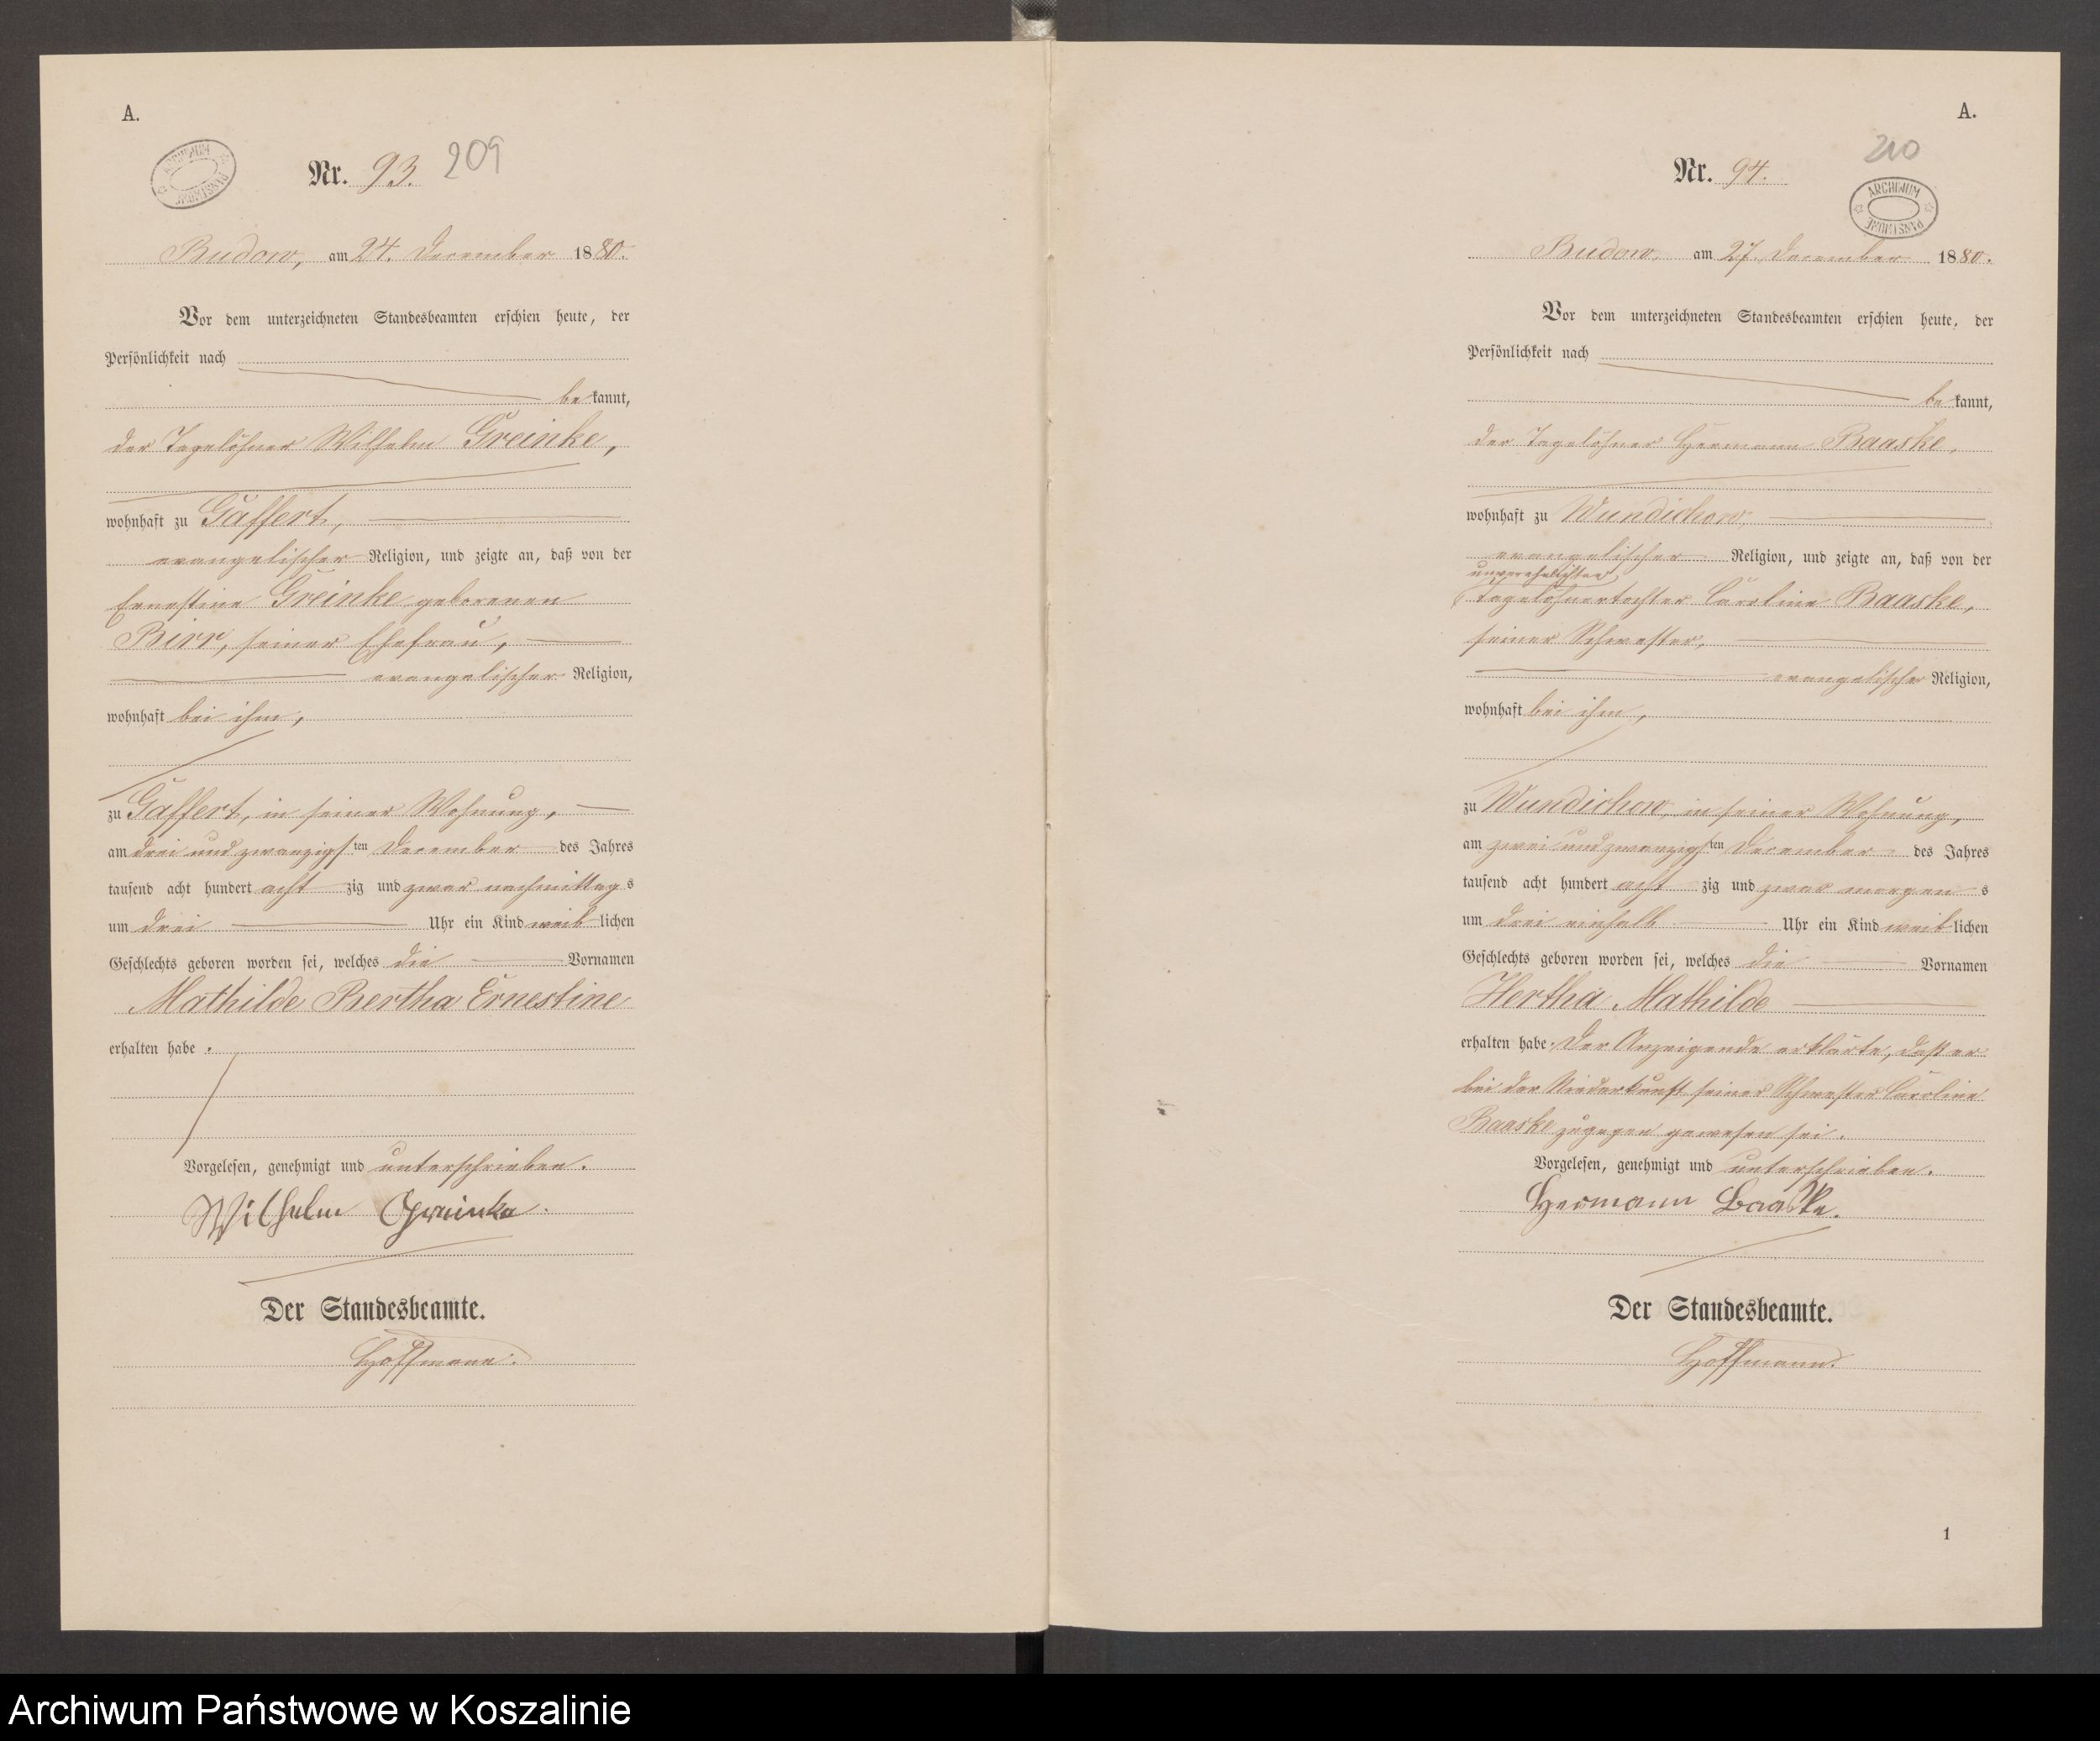 A.
ARCHIWUM PAŃSTWOWE
Nr. 93. 209
Budow, am 24. December 1880.
Vor dem unterzeichneten Standesbeamten erschien heute, der
Persönlichkeit nach
bekannt,
der Tagelöhner Wilhelm Greinke,
wohnhaft zu Gaffert,
evangelischer Religion, und zeigte an, daß von der
Ernestine Greinke geborenen
Birr, seiner Ehefrau,
evangelischer Religion,
wohnhaft bei ihm,
zu Gaffert, in seiner Wohnung,
am drei und zwanzigsten December des Jahres
tausend acht hundert achtzig und zwar nachmittags
um drei Uhr ein Kind weiblichen
Geschlechts geboren worden sei, welches die Vornamen
Mathilde Bertha Ernestine
erhalten habe.
Vorgelesen, genehmigt und unterschrieben.
Wilhelm Greinke.
Der Standesbeamte.
Hoffmann.
A.
210
Nr. 94.
ARCHIWUM PAŃSTWOWE
Budow, am 27. December 1880.
Vor dem unterzeichneten Standesbeamten erschien heute, der
Persönlichkeit nach
bekannt,
der Tagelöhner Hermann Baaske,
wohnhaft zu Wundichow,
evangelischer Religion, und zeigte an, daß von der
unverehelichten
Tagelöhnertochter Caroline Baaske,
seiner Schwester,
evangelischer Religion,
wohnhaft bei ihm,
zu Wundichow, in seiner Wohnung,
am zwei und zwanzigsten December des Jahres
tausend acht hundert achtzig und zwar morgens
um drei einhalb Uhr ein Kind weiblichen
Geschlechts geboren worden sei, welches die Vornamen
Hertha Mathilde
erhalten habe. Der Anzeigende erklärte, daß er
bei der Niederkunft seiner Schwester Caroline
Baaske zugegen gewesen sei.
Vorgelesen, genehmigt und unterschrieben.
Hermann Baaske.
Der Standesbeamte.
Hoffmann.
1
Archiwum Państwowe w Koszalinie